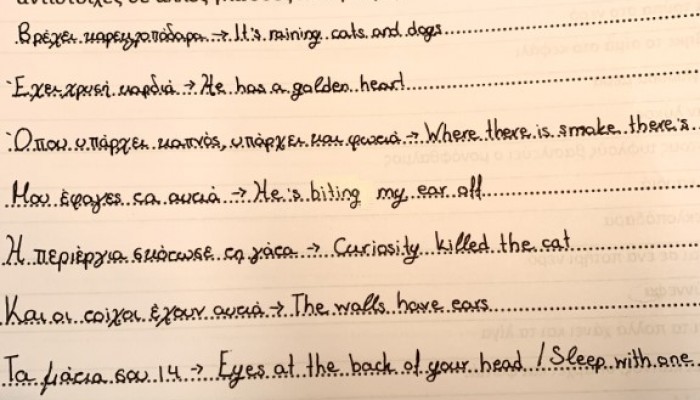 Βρέχει καρεκλοπόδαρα → It's raining cats and dogs
Έχει χρυσή καρδιά → He has a golden heart
Όπου υπάρχει καπνός, υπάρχει και φωτιά → Where there is smoke there's
Μου έφαγες τα αυτιά → He's biting my ear off
Η περιέργια σκότωσε τη γάτα → Curiosity killed the cat
Και οι τοίχοι έχουν αυτιά → The walls have ears
Τα μάτια σου 14 → Eyes at the back of your head / Sleep with one